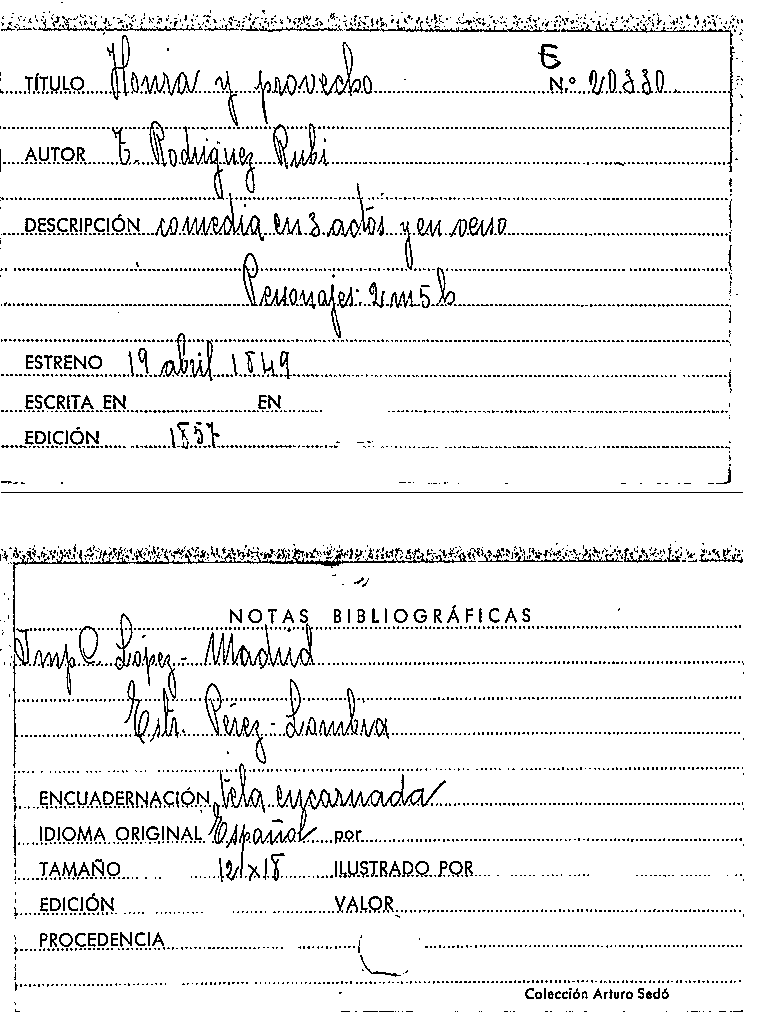 E
TÍTULO Honra y provecho N.º 20330
AUTOR T. Rodriguez Rubi
DESCRIPCIÓN comedia en 3 actos y en verso
Personajes: 2 m 5 h
ESTRENO 19 abril 1849
ESCRITA EN EN
EDICIÓN 1857
NOTAS BIBLIOGRÁFICAS
Imp C. López - Madrid
Estr. Pérez - Lombia
ENCUADERNACIÓN tela encarnada
IDIOMA ORIGINAL Español por
TAMAÑO 12 x 18 ILUSTRADO POR
EDICIÓN VALOR
PROCEDENCIA
Colección Arturo Sedó